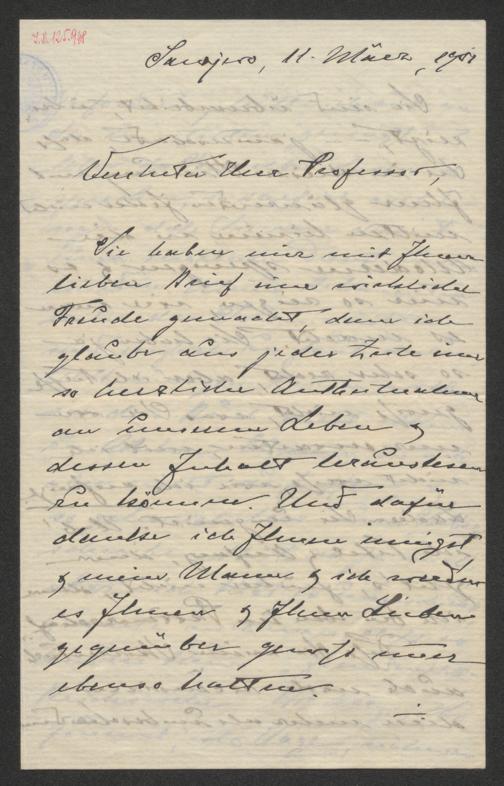 I.N. 125.948
Sarajevo, 11. März, 1901
Verehrter Herr Professor,
Sie haben mir mit Ihrem
lieben Brief eine wirkliche
Freude gemacht, denn ich
glaube aus jeder Zeile eine
so herzliche Antheilnahme
an unserem Leben &
dessen Inhalt herauslesen
zu können. Und dafür
danke ich Ihnen innigst
& mein Mann & ich werden
es Ihnen & Ihren Lieben
gegenüber gewiß immer
ebenso halten.